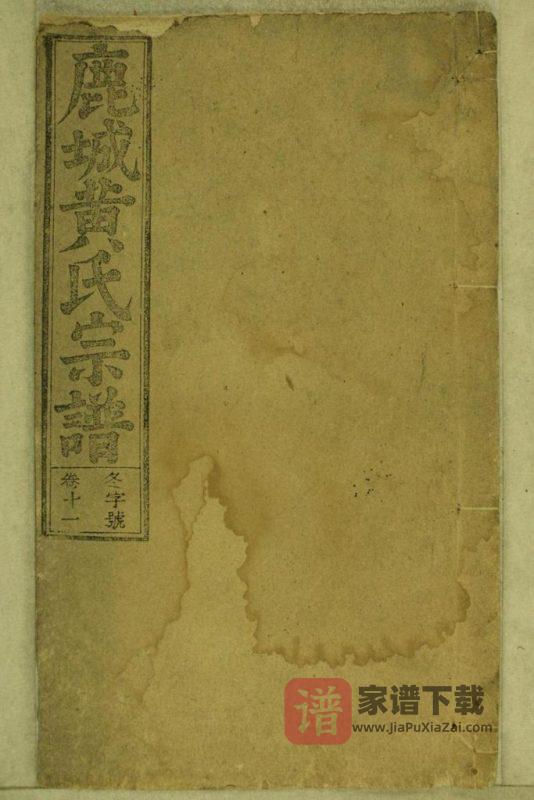 鹿城黄氏宗譜
冬字號
卷十一
谱
家谱下载
www.JiaPuXiaZai.com